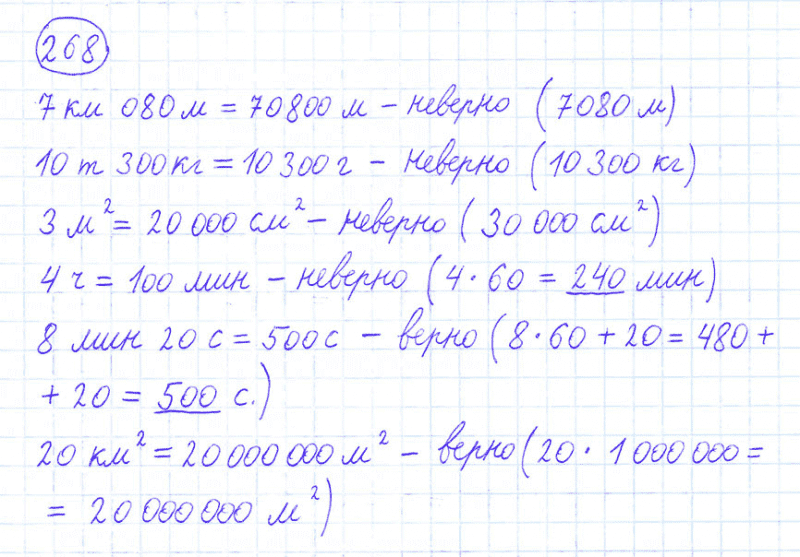 268
7 км 080 м = 70800 м – неверно (7080 м)
10 т 300 кг = 10 300 г – неверно (10 300 кг)
3 м² = 20 000 см² – неверно (30 000 см²)
4 ч = 100 мин – неверно (4 · 60 = 240 мин)
8 мин 20 с = 500 с – верно (8 · 60 + 20 = 480 +
+ 20 = 500 с.)
20 км² = 20 000 000 м² – верно (20 · 1 000 000 =
= 20 000 000 м²)